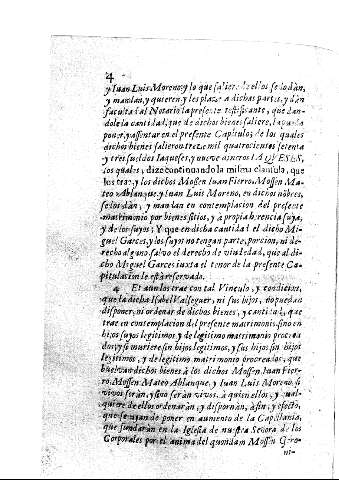 4
y Iuan Luis Moreno, y lo que saliere de ellos se lo dàn,
y mandan, y quieren, y les plaze a dichas partes, y dàn
facultad al Notario la presente testificante, que dan-
dole la cantidad, que de dichos bienes saliere, la pueda
poner, y assentar en el presente Capitulos de los quales
dichos bienes salieron treze mil quatrocientos setenta
y tres sueldos Iaqueses, y nueve dineros IAQVESES,
los quales, dize continuando la misma clausula, que
los trae, y los dichos Mossen Iuan Fierro, Mossen Ma-
teo Ablanque, y Iuan Luis Moreno, en dichos nõbres,
se los dàn, y mandan en contemplacion del presente
matrimonio por bienes sitios, y à propia herencia suya,
y de los suyos; Y que en dicha cantidad el dicho Mi-
guel Garces, y los suyos no tengan parte, porcion, ni de-
recho alguno, salvo el derecho de viudedad, que al di-
cho Miguel Garces juxta el tenor de la presente Ca-
pitulacion le està reservado.
4 Et aun los trae con tal Vinculo, y condicion,
que la dicha Isabel Vallseguer, ni sus hijos, no puedan
disponer, ni ordenar de dichos bienes, y cantidad, que
trae en contemplacion del presente matrimonio, sino en
hijos suyos legitimos, y de legitimo matrimonio procrea-
dos, y si muriere sin hijos legitimos, y sus hijos sin hijos
legitimos, y de legitimo matrimonio procreados, que
buelvan dichos bienes à los dichos Mossen Iuan Fier-
ro, Mossen Mateo Ablanque, y Iuan Luis Moreno, si
vivos seràn, y sino seràn vivos, à quien ellos, y qual-
quiere de ellos ordenaràn, y dispornàn, à fin, y efecto,
que se ayan de poner en aumento de la Capellania,
que fundaràn en la Iglesia de nuestra Señora de los
Corporales por el anima del quondam Mossen Gero-
ni-